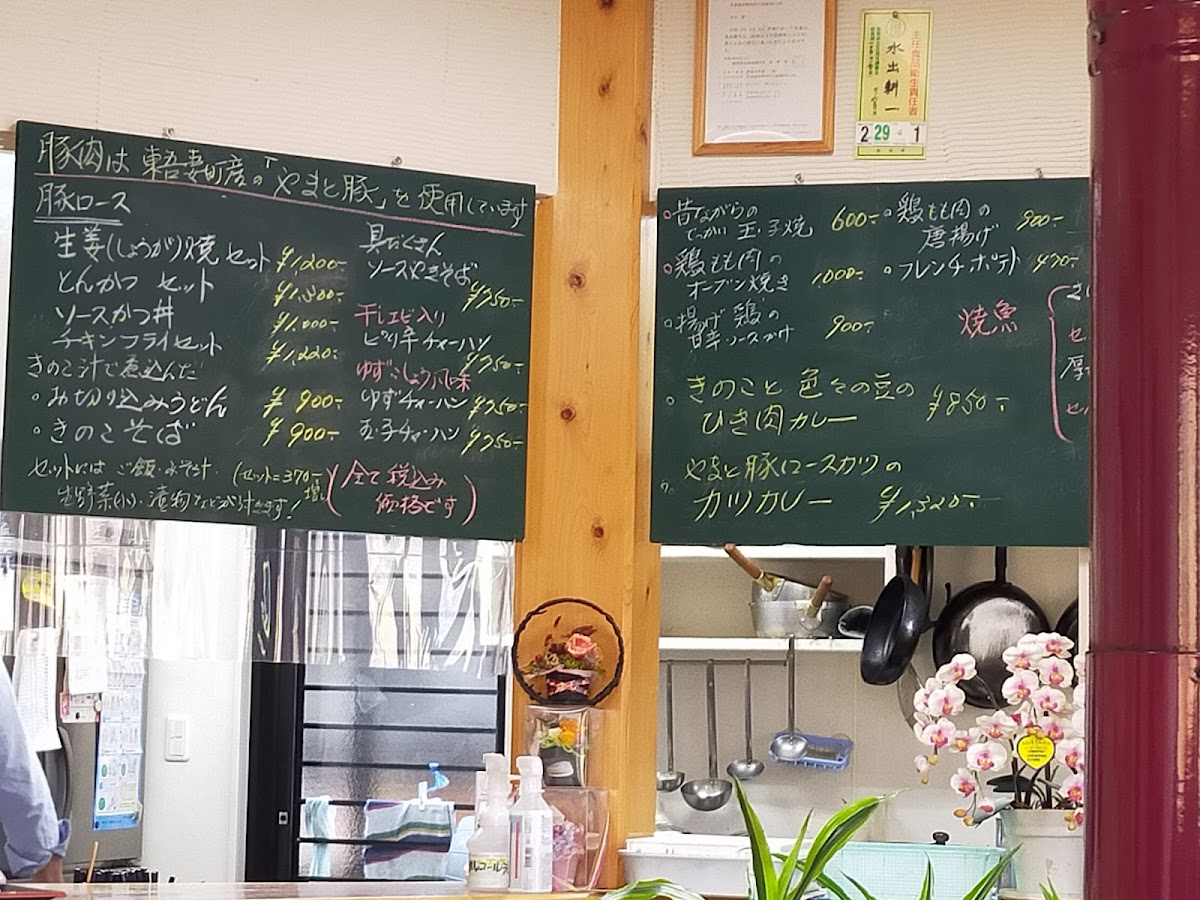 豚肉は東吾妻町産の「やまと豚」を使用しています
豚ロース
生姜(しょうが)焼セット ¥1,200-
とんかつ セット ¥1,500-
ソースかつ丼 ¥1,000-
チキンフライセット ¥1,220-
きのこ汁で煮込んだ
・お切り込みうどん ¥900-
・きのこそば ¥900-
セットには ご飯・みそ汁・
生野菜(小)・漬物などが付きます!
(セット=370-増し)
(全て税込み
価格です)
具だくさん
ソースやきそば ¥750-
干しエビ入り
ピリ辛チャーハン ¥750-
ゆずこしょう風味
ゆずチャーハン ¥750-
玉子チャーハン ¥750-
・昔ながらの
でっかい玉子焼 600-
・鶏もも肉の
オーブン焼き 1000-
・揚げ鶏の
甘辛ソースがけ 900-
・鶏もも肉の
唐揚げ 900-
・フレンチポテト 470-
焼魚
・きのこと色々の豆の
ひき肉カレー ¥850-
やまと豚ロースカツの
カツカレー ¥1,320-
主任食品衛生責任者
水出耕一
2 29 1